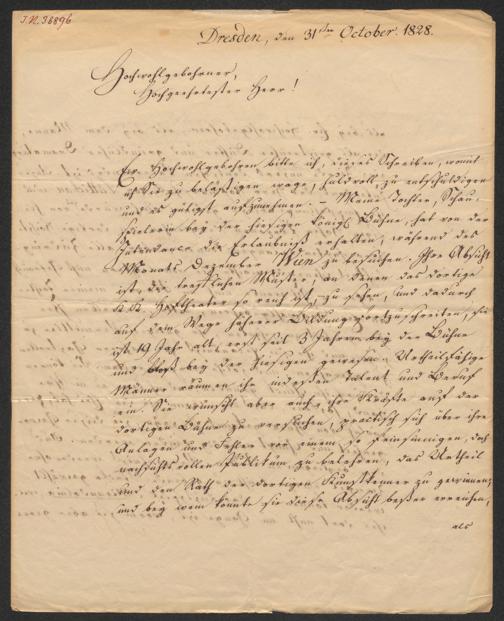 I.N. 36896
Dresden, den 31sten October. 1828.
Hochwohlgebohrner,
Hochgeehrtester Herr!
Ew. Hochwohlgebohren bitte ich, dieses Schreiben, womit
ich Sie zu belästigen wage, huldvoll zu entschuldigen
und es gütigst aufzunehmen. – Meine Tochter, Schau-
spielerin bey der hiesigen königl. Bühne, hat von der
Intendance die Erlaubniß erhalten, während des
Monats Dezember Wien zu besuchen. Ihre Absicht
ist, die trefflichen Muster, an denen das dortige
K. K. Hoftheater so reich ist, zu sehen, und dadurch
auf dem Wege höherer Bildung fortzuschreiten, sie
ist 19 Jahr alt, erst seit 3 Jahren bey der Bühne
und bloß bey der hiesigen gewesen. Urtheilsfähige
Männer räumen ihr indessen Talent und Beruf
ein. Sie wünscht aber auch, ihre Kräfte auf der
dortigen Bühne zu versuchen, practisch sich über ihre
Anlagen und Fehler vor einem so feinsinnigen, doch
nachsichtsvollen Publikum, zu belehren, das Urtheil
und den Rath der dortigen Kunstkenner zu gewinnen;
und bey wem könnte sie diese Absicht besser erreichen,
als